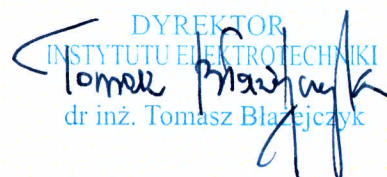 DYREKTOR
INSTYTUTU ELEKTROTECHNIKI
Tomasz Błażejczyk
dr inż. Tomasz Błażejczyk